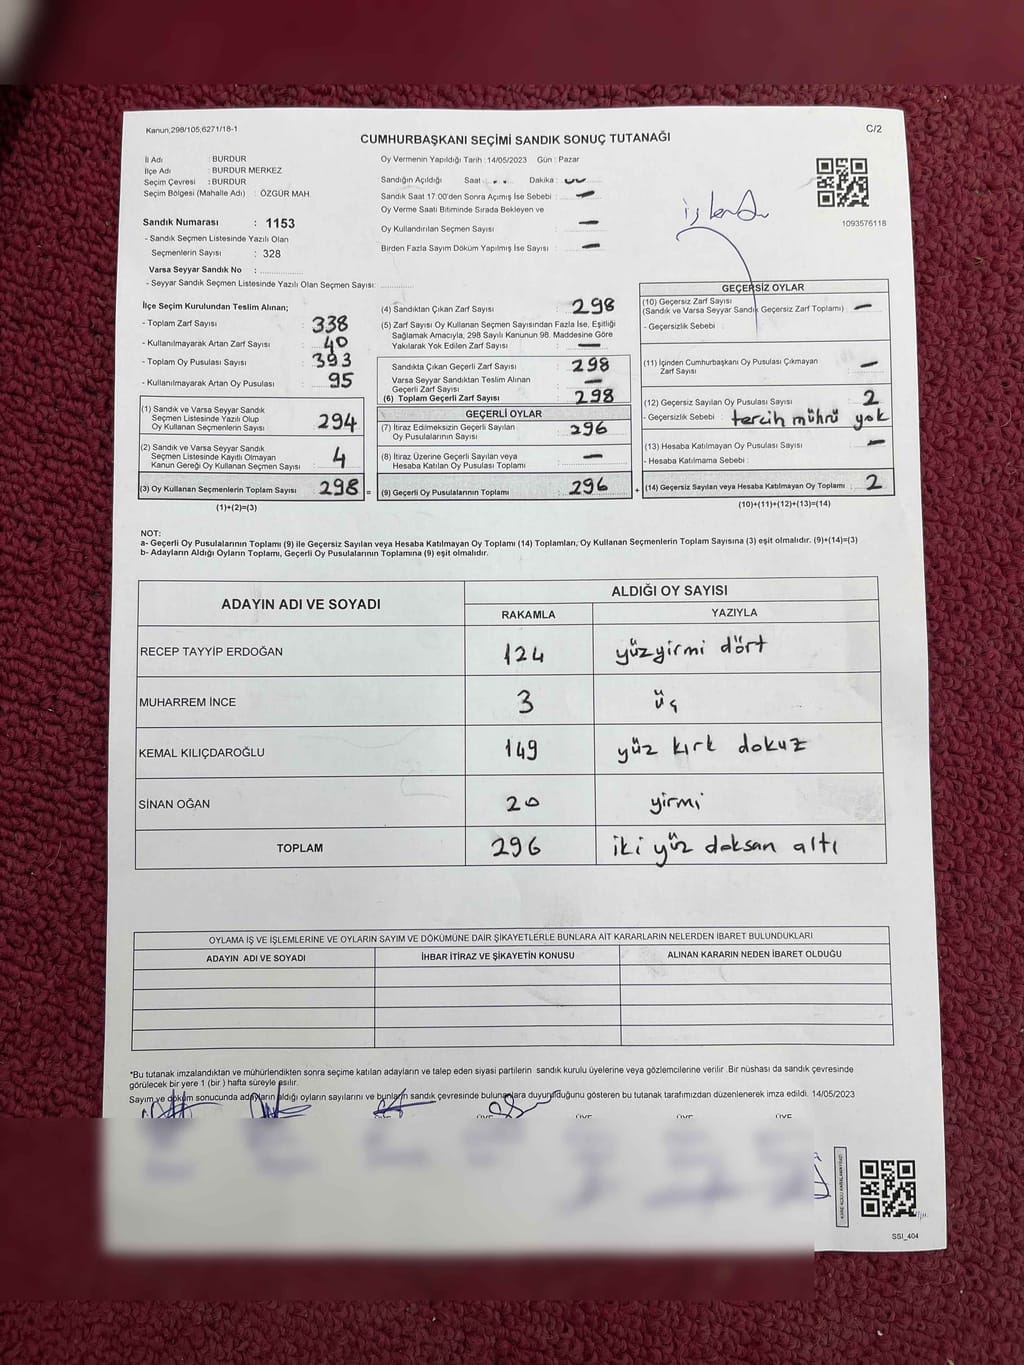 Kanun,298/105,6271/18-1
C/2
CUMHURBAŞKANI SEÇİMİ SANDIK SONUÇ TUTANAĞI
İl Adı : BURDUR
İlçe Adı : BURDUR MERKEZ
Seçim Çevresi : BURDUR
Seçim Bölgesi (Mahalle Adı) : ÖZGÜR MAH.
Sandık Numarası : 1153
- Sandık Seçmen Listesinde Yazılı Olan
Seçmenlerin Sayısı : 328
Varsa Seyyar Sandık No :
- Seyyar Sandık Seçmen Listesinde Yazılı Olan Seçmen Sayısı:
Oy Vermenin Yapıldığı Tarih :14/05/2023 Gün : Pazar
Sandığın Açıldığı Saat : Dakika :
Sandık Saat 17:00'den Sonra Açımış İse Sebebi : —
Oy Verme Saati Bitiminde Sırada Bekleyen ve
Oy Kullandırılan Seçmen Sayısı : —
Birden Fazla Sayım Döküm Yapılmış İse Sayısı : —
1093576118
İlçe Seçim Kurulundan Teslim Alınan;
- Toplam Zarf Sayısı : 338
- Kullanılmayarak Artan Zarf Sayısı : 40
- Toplam Oy Pusulası Sayısı : 393
- Kullanılmayarak Artan Oy Pusulası : 95
(1) Sandık ve Varsa Seyyar Sandık
Seçmen Listesinde Yazılı Olup
Oy Kullanan Seçmenlerin Sayısı : 294
(2) Sandık ve Varsa Seyyar Sandık
Seçmen Listesinde Kayıtlı Olmayan
Kanun Gereği Oy Kullanan Seçmen Sayısı : 4
(3) Oy Kullanan Seçmenlerin Toplam Sayısı : 298 =
(1)+(2)=(3)
(4) Sandıktan Çıkan Zarf Sayısı : 298
(5) Zarf Sayısı Oy Kullanan Seçmen Sayısından Fazla İse, Eşitliği
Sağlamak Amacıyla, 298 Sayılı Kanunun 98. Maddesine Göre
Yakılarak Yok Edilen Zarf Sayısı : —
Sandıkta Çıkan Geçerli Zarf Sayısı : 298
Varsa Seyyar Sandıktan Teslim Alınan
Geçerli Zarf Sayısı : —
(6) Toplam Geçerli Zarf Sayısı : 298
GEÇERLİ OYLAR
(7) İtiraz Edilmeksizin Geçerli Sayılan
Oy Pusulalarının Sayısı : 296
(8) İtiraz Üzerine Geçerli Sayılan veya
Hesaba Katılan Oy Pusulası Toplamı : —
(9) Geçerli Oy Pusulalarının Toplamı : 296 +
GEÇERSİZ OYLAR
(10) Geçersiz Zarf Sayısı
(Sandık ve Varsa Seyyar Sandık Geçersiz Zarf Toplamı) : —
- Geçersizlik Sebebi :
(11) İçinden Cumhurbaşkanı Oy Pusulası Çıkmayan
Zarf Sayısı : —
(12) Geçersiz Sayılan Oy Pusulası Sayısı : 2
- Geçersizlik Sebebi : tercih mührü yok
(13) Hesaba Katılmayan Oy Pusulası Sayısı : —
- Hesaba Katılmama Sebebi :
(14) Geçersiz Sayılan veya Hesaba Katılmayan Oy Toplamı : 2
(10)+(11)+(12)+(13)=(14)
NOT:
a- Geçerli Oy Pusulalarının Toplamı (9) ile Geçersiz Sayılan veya Hesaba Katılmayan Oy Toplamı (14) Toplamları; Oy Kullanan Seçmenlerin Toplam Sayısına (3) eşit olmalıdır. (9)+(14)=(3)
b- Adayların Aldığı Oyların Toplamı, Geçerli Oy Pusulalarının Toplamına (9) eşit olmalıdır.
ADAYIN ADI VE SOYADI
ALDIĞI OY SAYISI
RAKAMLA YAZIYLA
RECEP TAYYİP ERDOĞAN 124 yüzyirmi dört
MUHARREM İNCE 3 üç
KEMAL KILIÇDAROĞLU 149 yüz kırk dokuz
SİNAN OĞAN 20 yirmi
TOPLAM 296 iki yüz doksan altı
OYLAMA İŞ VE İŞLEMLERİNE VE OYLARIN SAYIM VE DÖKÜMÜNE DAİR ŞİKAYETLERLE BUNLARA AİT KARARLARIN NELERDEN İBARET BULUNDUKLARI
ADAYIN ADI VE SOYADI İHBAR İTİRAZ VE ŞİKAYETİN KONUSU ALINAN KARARIN NEDEN İBARET OLDUĞU
*Bu tutanak imzalandıktan ve mühürlendikten sonra seçime katılan adayların ve talep eden siyasi partilerin sandık kurulu üyelerine veya gözlemcilerine verilir .Bir nüshası da sandık çevresinde
görülecek bir yere 1 (bir ) hafta süreyle asılır.
Sayım ve döküm sonucunda adayların aldığı oyların sayılarını ve bunların sandık çevresinde bulunanlara duyurulduğunu gösteren bu tutanak tarafımızdan düzenlenerek imza edildi. 14/05/2023
ÜYE ÜYE ÜYE
SSI_404